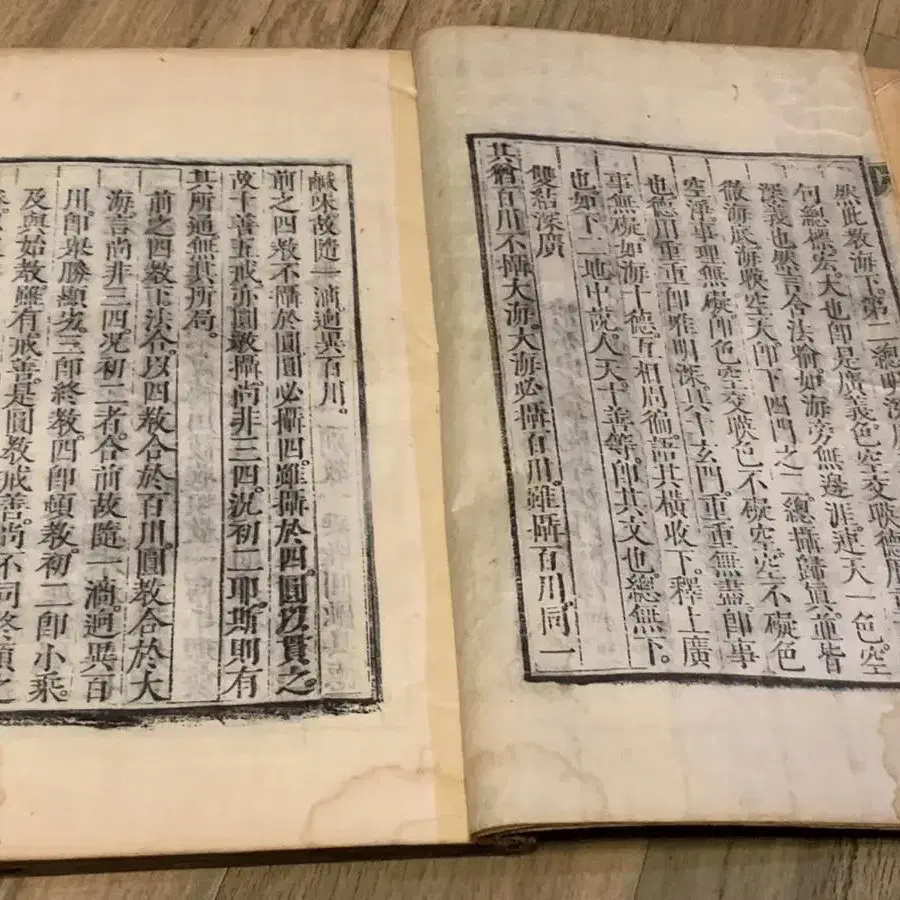 然此教海下。第二總明深
何總標宏。大也即是廣義色空交暎德用重
深義也然言合法喻如海旁無邊涯。連天一色。空
微海底海暎空天即下四門之二總攝歸眞並皆
空淨。事理無礙。即色空交暎色不礙空空不礙色
也德用重重即唯明深具十玄門。重重無盡。即事
事無礙如海十德互相周徧語其橫收下。釋上廣
也如下二地中說。人天十善等。即其文也總無下。
雙結深廣
其猶百川不攝大海。大海必攝百川。雖攝百川同一
鹹味故隨一滴迥異百川。
前之四教不攝於圓圓必攝四。雖攝於四。圓以貫之。
故十善五戒亦圓敎攝尚非三四。況初二耶。斯則有
其所通無其所局。
前之四教下法合。以四教合於百川。圓教合於大
海言尚非三四。況初二者。合前故隨一滴。迥異百
川。即舉勝顯劣。三即終教。四即頓教。初二即小乘。
及與始教雖有戒善。是圓教戒善。尚不同終頓之